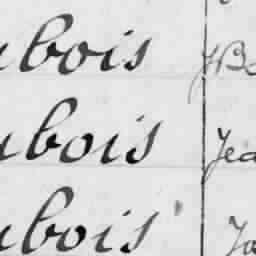 ubois JB
ubois Jea
ubois Ja